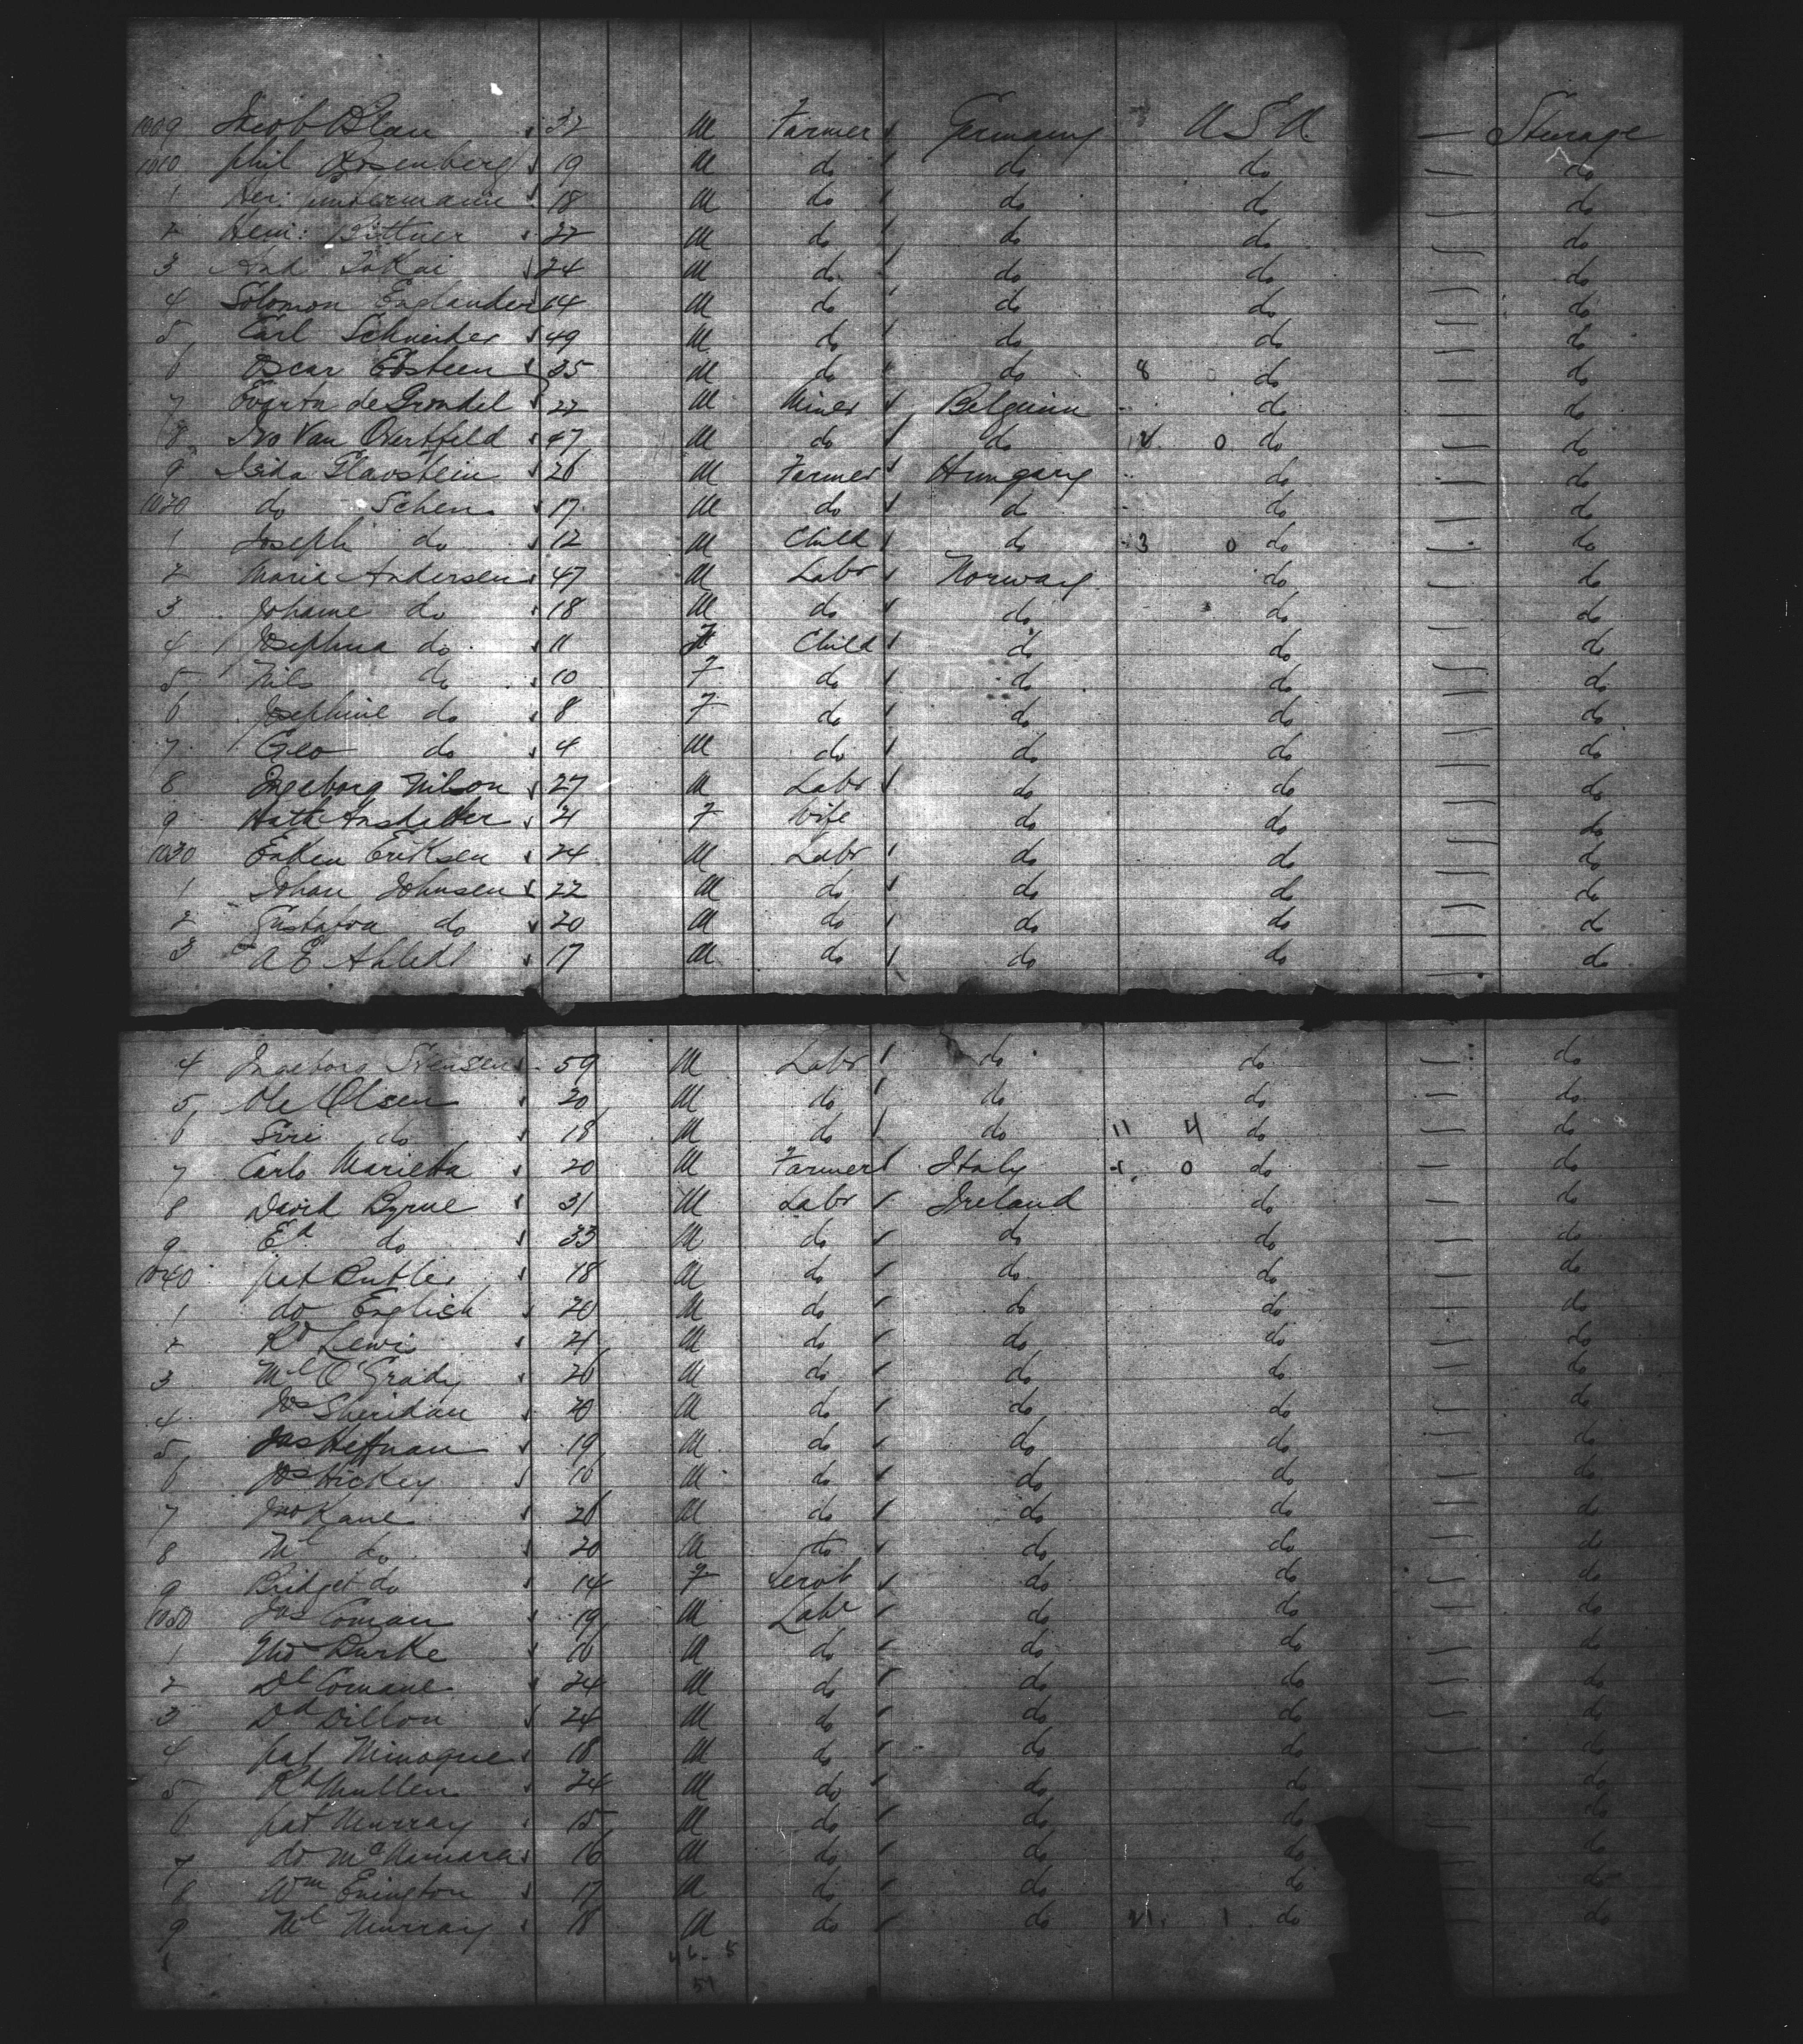 1009 Jacob Blau 32 M Farmer Germany U S A — Steerage
1010 Phil Rosenberg 19 M do do do — do
1 Her: 18 M do do do — do
2 Hein: Bittner 22 M do do do — do
3 And Tokai 24 M do do do — do
4 Solomon Englander 14 M do do do — do
5 Carl Schneider 49 M do do do — do
6 Oscar Ebsteen 35 M do do 8 0 do — do
7 Evarta de Grondel 22 M Miner Belgium do — do
8 Ivo Van Overtfeld 47 M do do 0 do — do
9 Isida Glavstein 26 M Farmer Hungary do — do
1020 do Schen 17 M do do do — do
1 Joseph do 12 M Child do 3 0 do — do
2 Maria Andersen 47 M Labr Norway do — do
3 Johanne do 18 M do do do — do
4 Josephina do 11 F Child do do — do
5 Nils do 10 F do do do — do
6 Josephine do 8 F do do do — do
7 Geo do 4 M do do do — do
8 Ingeborg Nilson 27 M Labr do do — do
9 21 F Wife do do — do
1030 Eriksen 24 M Labr do do — do
1 Johan Johnsen 22 M do do do — do
2 Gustafva do 20 M do do do — do
3 A E 17 M do do do — do
4 Ingeborg Svensen 59 M Labr do do — do
5 Ole Olsen 20 M do do do — do
6 Siri do 18 M do do 11 4 do — do
7 Carlo Marietta 20 M Farmer Italy 0 do — do
8 David Byrne 31 M Labr Ireland do — do
9 Ed do 33 M do do do — do
1040 Pat Butler 18 M do do do — do
1 do English 20 M do do do — do
2 Rd Lewis 21 M do do do — do
3 Ml O'Grady 26 M do do do — do
4 Jos Sheridan 20 M do do do — do
5 Jas Heffnan 19 M do do do — do
6 Jos Hickey M do do do — do
7 Jno Kane 26 M do do do — do
8 Ml do 20 M do do do — do
9 Bridget do 14 F Servt do do — do
1050 Jas Coman 19 M Labr do do — do
1 Tho Burke M do do do — do
2 Dl Comane 24 M do do do — do
3 Dd Dillon 24 M do do do — do
4 Pat Minogue 18 M do do do — do
5 Rd Mullen 24 M do do do — do
6 Pat Murray 15 M do do do — do
7 do McNamara 16 M do do do — do
8 Wm Enington 17 M do do do — do
9 Ml Murray 18 M do do 21 1 do — do
46 - 5
51